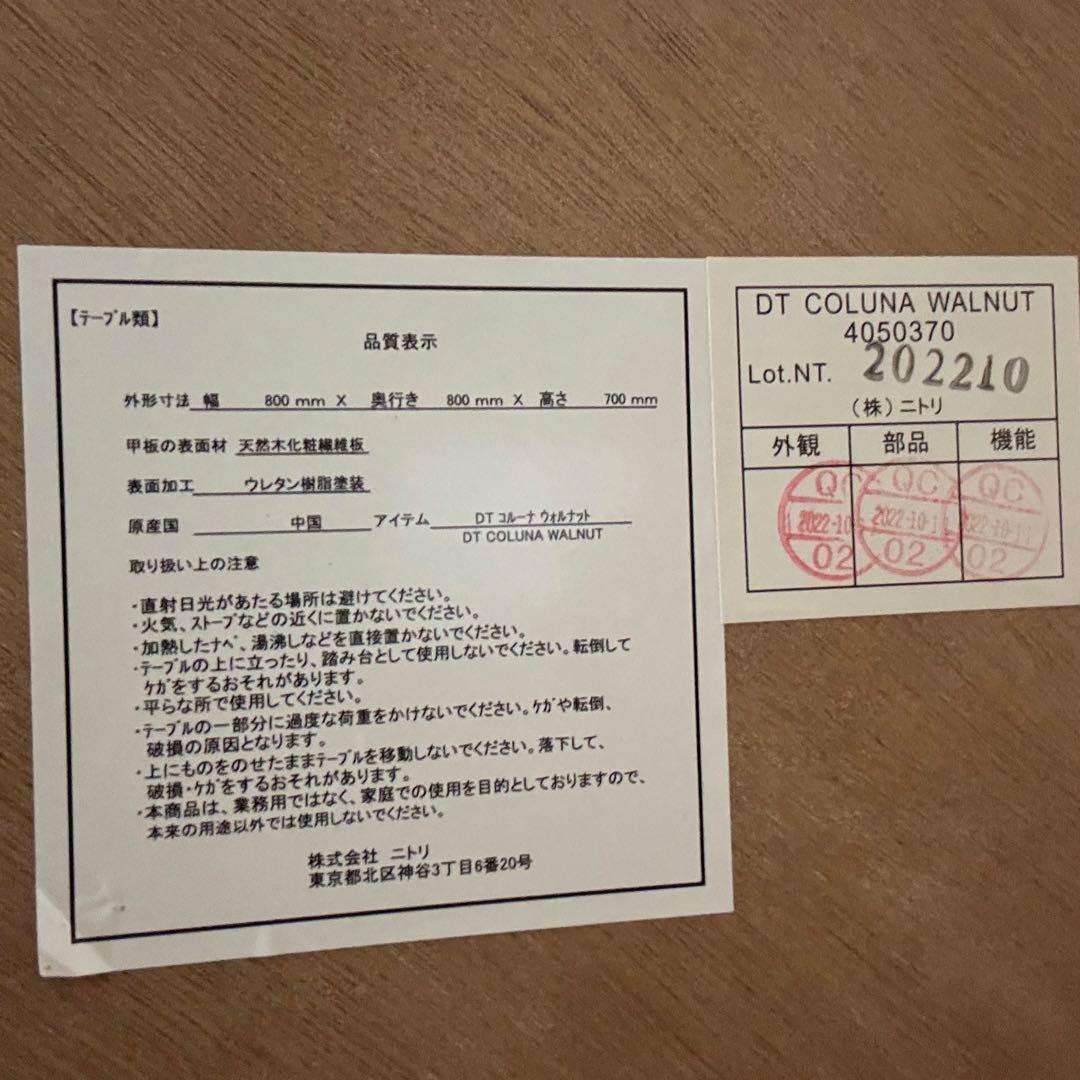 【ﾃｰﾌﾞﾙ類】
品質表示
外形寸法 幅 800 mm X 奥行き 800 mm X 高さ 700 mm
甲板の表面材 天然木化粧繊維板
表面加工 ウレタン樹脂塗装
原産国 中国 アイテム DT ｺﾙｰﾅ ｳｫﾙﾅｯﾄ
DT COLUNA WALNUT
取り扱い上の注意
・直射日光があたる場所は避けてください。
・火気、ｽﾄｰﾌﾞなどの近くに置かないでください。
・加熱したﾅﾍﾞ、湯沸しなどを直接置かないでください。
・ﾃｰﾌﾞﾙの上に立ったり、踏み台として使用しないでください。転倒して
ｹｶﾞをするおそれがあります。
・平らな所で使用してください。
・ﾃｰﾌﾞﾙの一部分に過度な荷重をかけないでください。ｹｶﾞや転倒、
破損の原因となります。
・上にものをのせたままﾃｰﾌﾞﾙを移動しないでください。落下して、
破損・ｹｶﾞをするおそれがあります。
・本商品は、業務用ではなく、家庭での使用を目的としておりますので、
本来の用途以外では使用しないでください。
株式会社 ニトリ
東京都北区神谷3丁目6番20号
DT COLUNA WALNUT
4050370
Lot.NT. 202210
（株）ニトリ
外観 部品 機能
QC QC QC
2022-10 2022-10-1 2022-10-11
02 02 02